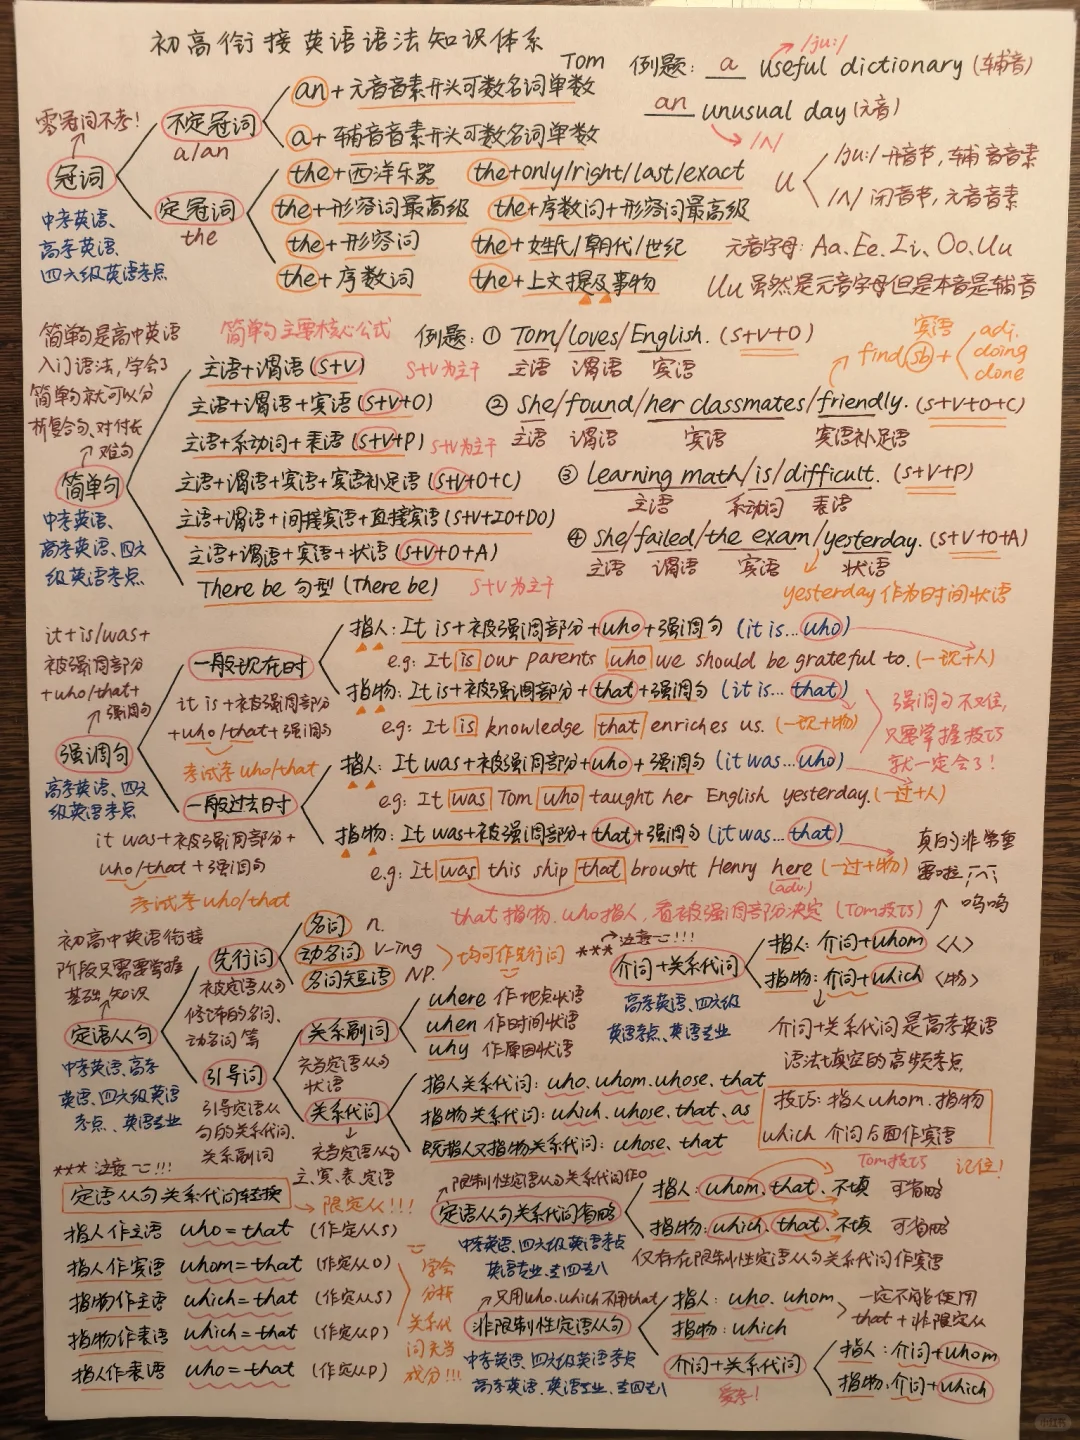 初高衔接英语语法知识体系
Tom
例题: a useful dictionary (辅音)
/ju:/
an unusual day (元音)
/ʌ/
零冠词不考!
冠词
中考英语、
高考英语、
四六级英语考点
不定冠词
a/an
an + 元音音素开头可数名词单数
a + 辅音音素开头可数名词单数
定冠词
the
the + 西洋乐器
the + only/right/last/exact
the + 形容词最高级
the + 序数词 + 形容词最高级
the + 形容词
the + 姓氏/朝代/世纪
the + 序数词
the + 上文提及事物
u
/ju:/ 开音节, 辅音音素
/ʌ/ 闭音节, 元音音素
元音字母: Aa、Ee、Ii、Oo、Uu
Uu 虽然是元音字母但是本音是辅音
简单句是高中英语
入门语法, 学会了
简单句就可以分
析复合句、对付长
难句
简单句
中考英语、
高考英语、四六
级英语考点
简单句主要核心公式
主语+谓语 (S+V) S+V为主干
主语+谓语+宾语 (S+V+O)
主语+系动词+表语 (S+V+P) S+V为主干
主语+谓语+宾语+宾语补足语 (S+V+O+C)
主语+谓语+间接宾语+直接宾语 (S+V+IO+DO)
主语+谓语+宾语+状语 (S+V+O+A)
There be 句型 (There be) S+V为主干
例题: ① Tom/loves/English. (S+V+O)
主语 谓语 宾语
宾语
find sb + adj.
doing
done
② She/found/her classmates/friendly. (S+V+O+C)
主语 谓语 宾语 宾语补足语
③ Learning math/is/difficult. (S+V+P)
主语 系动词 表语
④ She/failed/the exam/yesterday. (S+V+O+A)
主语 谓语 宾语 状语
yesterday 作为时间状语
it+is/was+
被强调部分
+who/that+
强调句
强调句
高考英语、四六
级英语考点
一般现在时
it is +被强调部分
+who/that+强调句
考试考 who/that
指人: It is+被强调部分+who+强调句 (it is...who)
e.g: It is our parents who we should be grateful to. (一现+人)
指物: It is+被强调部分+that+强调句 (it is...that)
e.g: It is knowledge that enriches us. (一现+物)
强调句不难,
只需掌握技巧
就一定会了!
一般过去时
it was+被强调部分+
who/that +强调句
考试考 who/that
指人: It was+被强调部分+who+强调句 (it was...who)
e.g: It was Tom who taught her English yesterday. (一过+人)
指物: It was+被强调部分+that+强调句 (it was...that)
e.g: It was this ship that brought Henry here (一过+物)
(adv.)
that 指物, who指人, 看被强调部分决定 (Tom技巧)
真的非常重
要啦
呜呜
初高中英语衔接
阶段只需要掌握
基础知识
定语从句
中考英语、高考
英语、四六级英语
考点、英语专业
先行词
被定语从句
修饰的名词、
动名词等
名词 n.
动名词 v-ing
名词短语 NP.
均可作先行词
引导词
引导定语从
句的关系代词、
关系副词
关系副词
充当定语从句
状语
where 作地点状语
when 作时间状语
why 作原因状语
关系代词
充当定语从句
主、宾、表、定语
指人关系代词: who、whom、whose、that
指物关系代词: which、whose、that、as
既指人又指物关系代词: whose、that
*** 注意!!!
介词+关系代词
高考英语、四六级
英语考点、英语专业
指人: 介词+whom <人>
指物: 介词+which <物>
介词+关系代词是高考英语
语法填空的高频考点
技巧: 指人whom, 指物
which 介词后面作宾语
Tom技巧 记住!
*** 注意!!!
定语从句关系代词转换
限定从!!!
指人作主语 who=that (作定从S)
指人作宾语 whom=that (作定从O)
指物作主语 which=that (作定从S)
指物作表语 which=that (作定从P)
指人作表语 who=that (作定从P)
学会
分析
关系代
词充当
成分!!!
限制性定语从句关系代词作O
定语从句关系代词省略
中考英语、四六级英语考点
英语专业、专四专八
指人: whom、that、不填 可省略
指物: which、that、不填 可省略
仅存在限制性定语从句关系代词作宾语
只用who、which不用that
非限制性定语从句
中考英语、四六级英语考点
高考英语、英语专业、专四专八
指人: who、whom
指物: which
一定不能使用
that + 非限定从
介词+关系代词
爱考!
指人: 介词+whom
指物: 介词+which
小红书